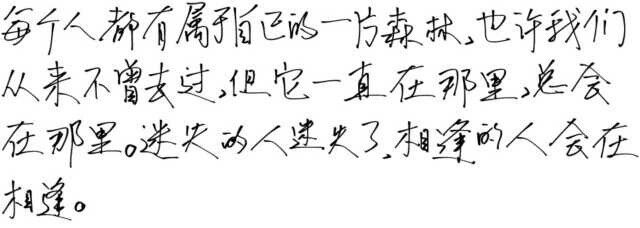 每个人都有属于自己的一片森林,也许我们
从来不曾去过,但它一直在那里,总会
在那里。迷失的人迷失了,相逢的人会在
相逢。